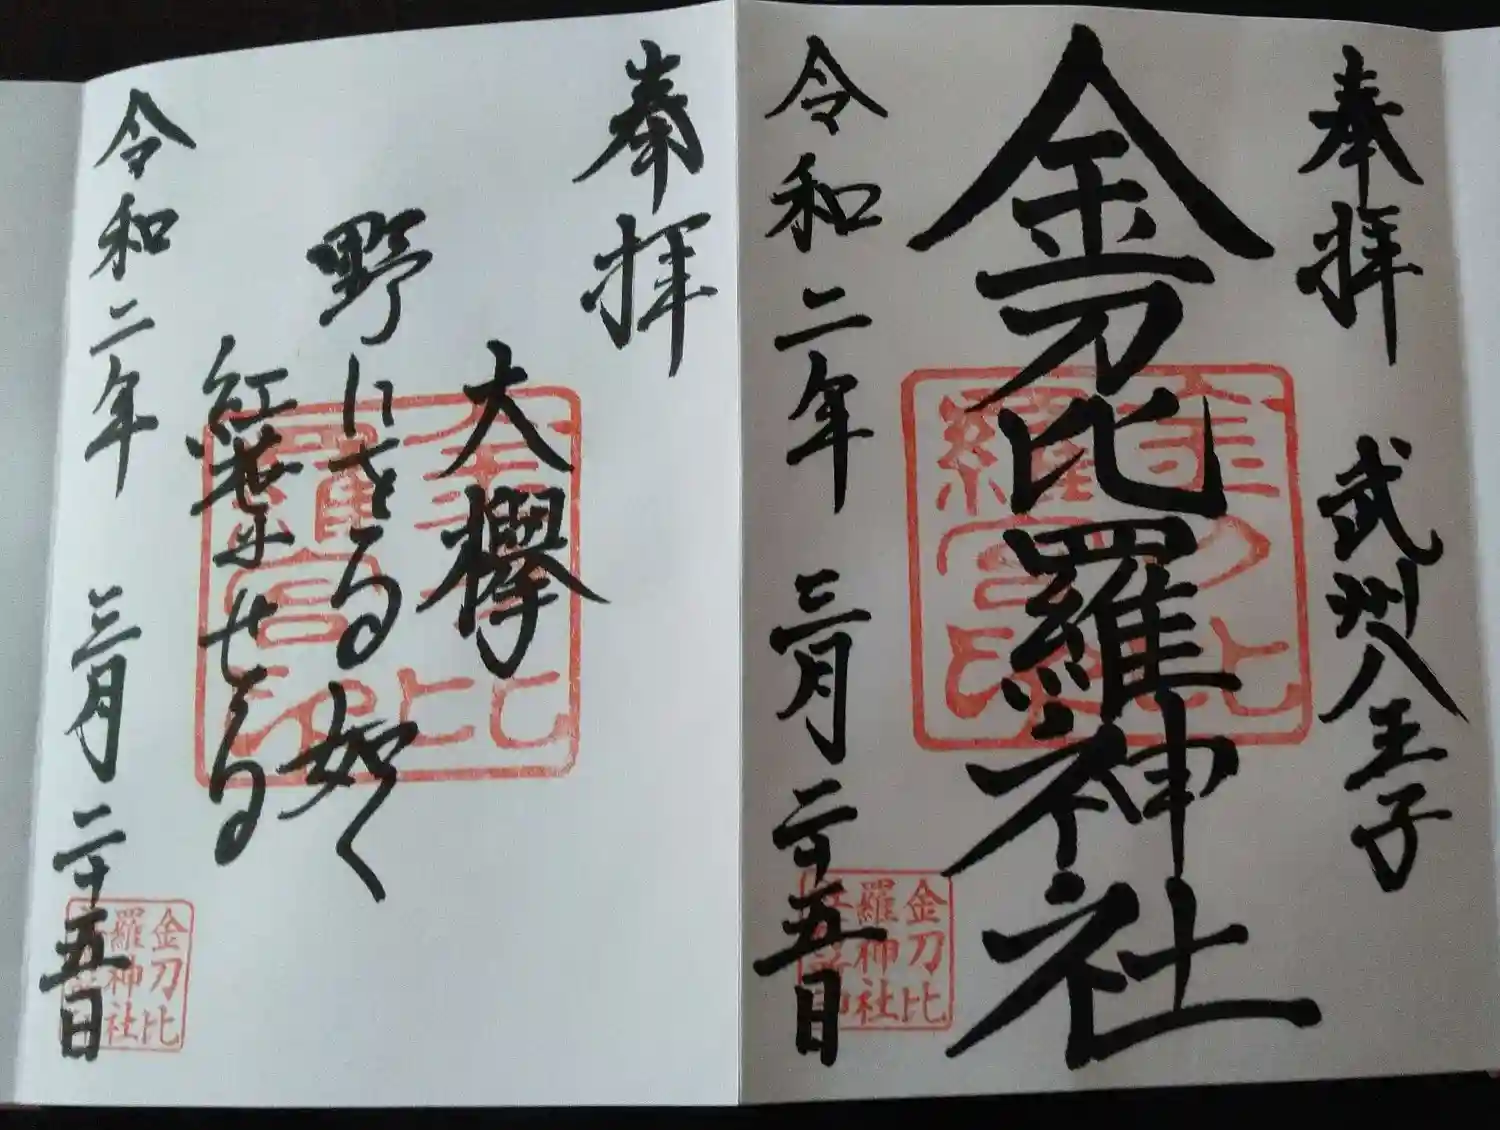 奉拝 武州八王子
金刀比羅神社
令和二年 三月二十五日
金刀比
羅神社
奉拝
大欅
野にさる如く
紅葉せる
令和二年 三月二十五日
金刀比
羅神社